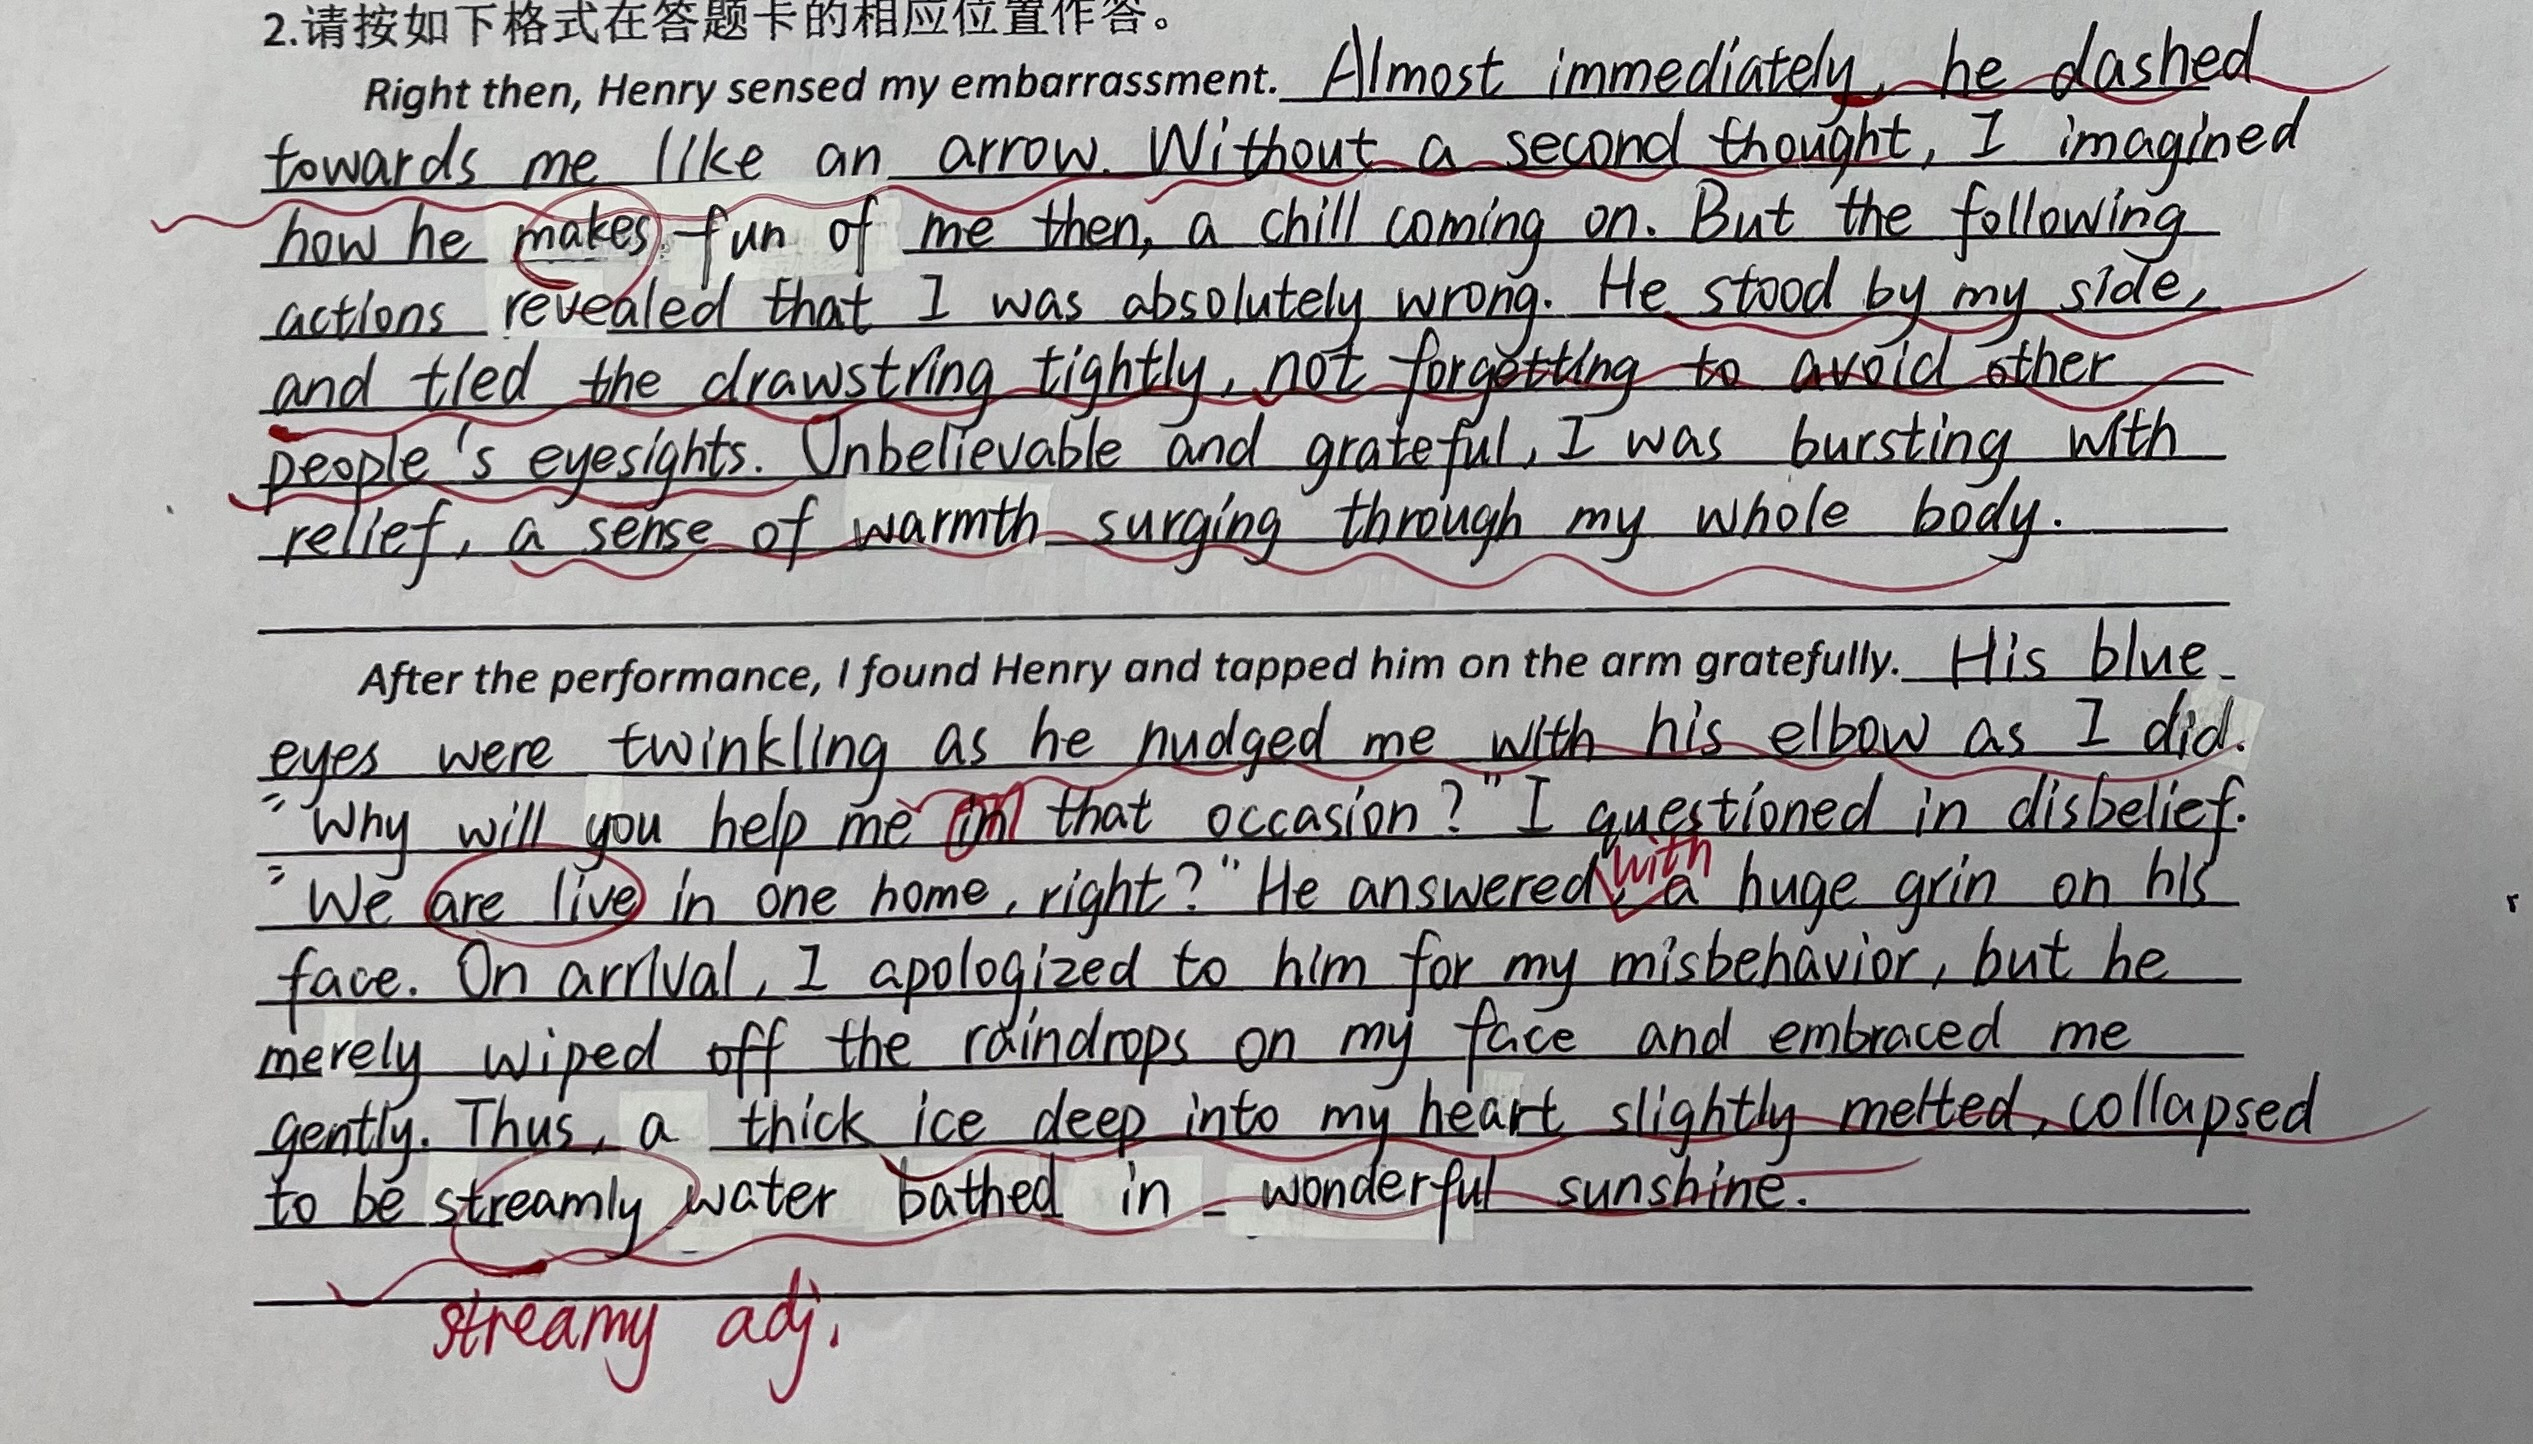 2.请按如下格式在答题卡的相应位置作答。
Right then, Henry sensed my embarrassment. Almost immediately, he dashed
towards me like an arrow. Without a second thought, I imagined
how he makes fun of me then, a chill coming on. But the following
actions revealed that I was absolutely wrong. He stood by my side,
and tied the drawstring tightly, not forgetting to avoid other
people's eyesights. Unbelievable and grateful, I was bursting with
relief, a sense of warmth surging through my whole body.
After the performance, I found Henry and tapped him on the arm gratefully. His blue
eyes were twinkling as he nudged me with his elbow as I did.
"Why will you help me in that occasion?" I questioned in disbelief.
with
"We are live in one home, right?" He answered, a huge grin on his
face. On arrival, I apologized to him for my misbehavior, but he
merely wiped off the raindrops on my face and embraced me
gently. Thus, a thick ice deep into my heart slightly melted, collapsed
to be streamly water bathed in wonderful sunshine.
streamy adj.